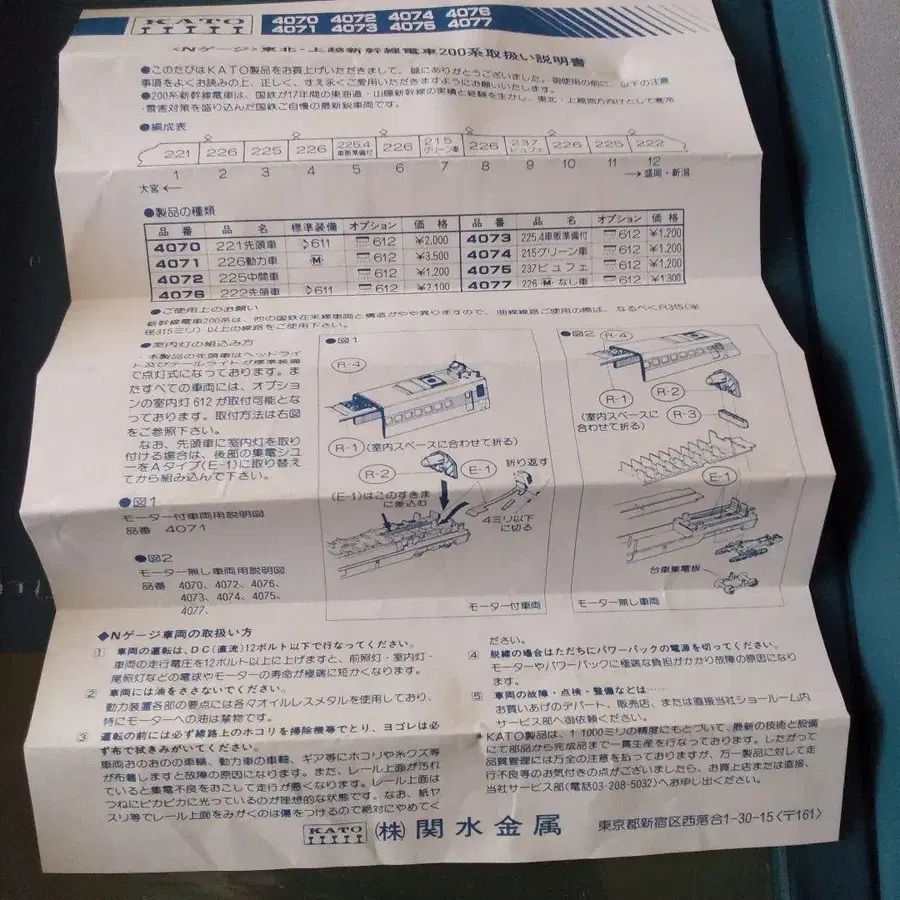 KATO
4070 4072 4074 4076
4071 4073 4075 4077
〈Nゲージ〉東北・上越新幹線電車200系取扱い説明書
●このたびはKATO製品をお買上げいただきまして、誠にありがとうございました。御使用の前に、以下の注意
事項をよくお読みの上、正しく、すえ永くご愛用いただきますようにお願いいたします。
●200系新幹線電車は、国鉄が17年間の東海道・山陽新幹線の実績と経験を生かし、東北・上越地方向けとして寒冷
・雪害対策を盛り込んだ国鉄ご自慢の最新鋭車両です。
●編成表
221 226 225 226 225.4 車販準備付 226 215 グリーン車 226 237 ビュフェ 226 225 222
1 2 3 4 5 6 7 8 9 10 11 12
大宮← →盛岡・新潟
●製品の種類
品番 品名 標準装備 オプション 価格 品番 品名 オプション 価格
4070 221先頭車 611 612 ¥2,000 4073 225.4車販準備付 612 ¥1,200
4071 226動力車 M 612 ¥3,500 4074 215グリーン車 612 ¥1,200
4072 225中間車 612 ¥1,200 4075 237ビュフェ 612 ¥1,200
4076 222先頭車 611 612 ¥2,100 4077 226 M なし車 612 ¥1,300
●ご使用上のお願い
新幹線電車200系は、他の国鉄在来線車両と構造がやや異りますので、曲線線路ご使用の際は、なるべくR315(半
径315ミリ)以上の線路をご使用下さい。
●室内灯の組込み方
・本製品の先頭車はヘッドライ
ト及びテールライトが標準装備
で点灯式になっております。ま
たすべての車両には、オプショ
ンの室内灯612が取付可能とな
っております。取付方法は右図
をご参照下さい。
なお、先頭車に室内灯を取り
付ける場合は、後部の集電シュ
ーをAタイプ(E-1)に取り替え
てから組み込んで下さい。
●図1
モーター付車両用説明図
品番 4071
●図2
モーター無し車両用説明図
品番 4070、4072、4076、
4073、4074、4075、
4077、
●図1
R-4
R-1 (室内スペースに合わせて折る)
R-2
E-1
折り返す
(E-1)はこのすきま
に差込む
4ミリ以下
に切る
モーター付車両
●図2
R-4
R-1
R-2
(室内スペースに
合わせて折る)
R-3
E-1
台車集電板
モーター無し車両
◆Nゲージ車両の取扱い方
1 車両の運転は、DC(直流)12ボルト以下で行なってください。
車両の走行電圧を12ボルト以上に上げますと、前照灯・室内灯・
尾照灯などの電球やモーターの寿命が極端に短かくなります。
2 車両には油をささないでください。
動力装置各部の要点には各々オイルレスメタルを使用しており、
特にモーターへの油は禁物です。
3 運転の前には必ず線路上のホコリを掃除機等でとり、ヨゴレは必
ず布で拭きみがいてください。
車両おのおのの車輪、動力車の車輪、ギア等にホコリや糸クズ等
が付着しますと故障の原因になります。また、レール上面が汚れ
ていると集電不良をおこして走行が悪くなります。レール上面は
つねにピカピカに光っているのが理想的な状態です。なお、紙や
スリ等でレール上面をみがくのは傷をつけるので絶対にやめてく
ださい。
4 脱線の場合はただちにパワーパックの電源を切ってください。
モーターやパワーパックに極端な負担がかかり故障の原因になり
ます。
5 車両の故障・点検・整備などは……
お買いあげのデパート、販売店、または直接当社ショールーム内
サービス部へ御依頼ください。
●KATO製品は、1/1000ミリの精度にもとづいて、最新の技術と設備
にて部品から完成品まで一貫生産を行なっております。したがって
品質管理には万全の注意を払っておりますが、万一製品に対して走
行不良等のお気付きの点がございましたら、お買上店または直接、
当社サービス部(電話03-208-5032)へお申し出ください。
KATO (株)関水金属 東京都新宿区西落合1-30-15〈〒161〉